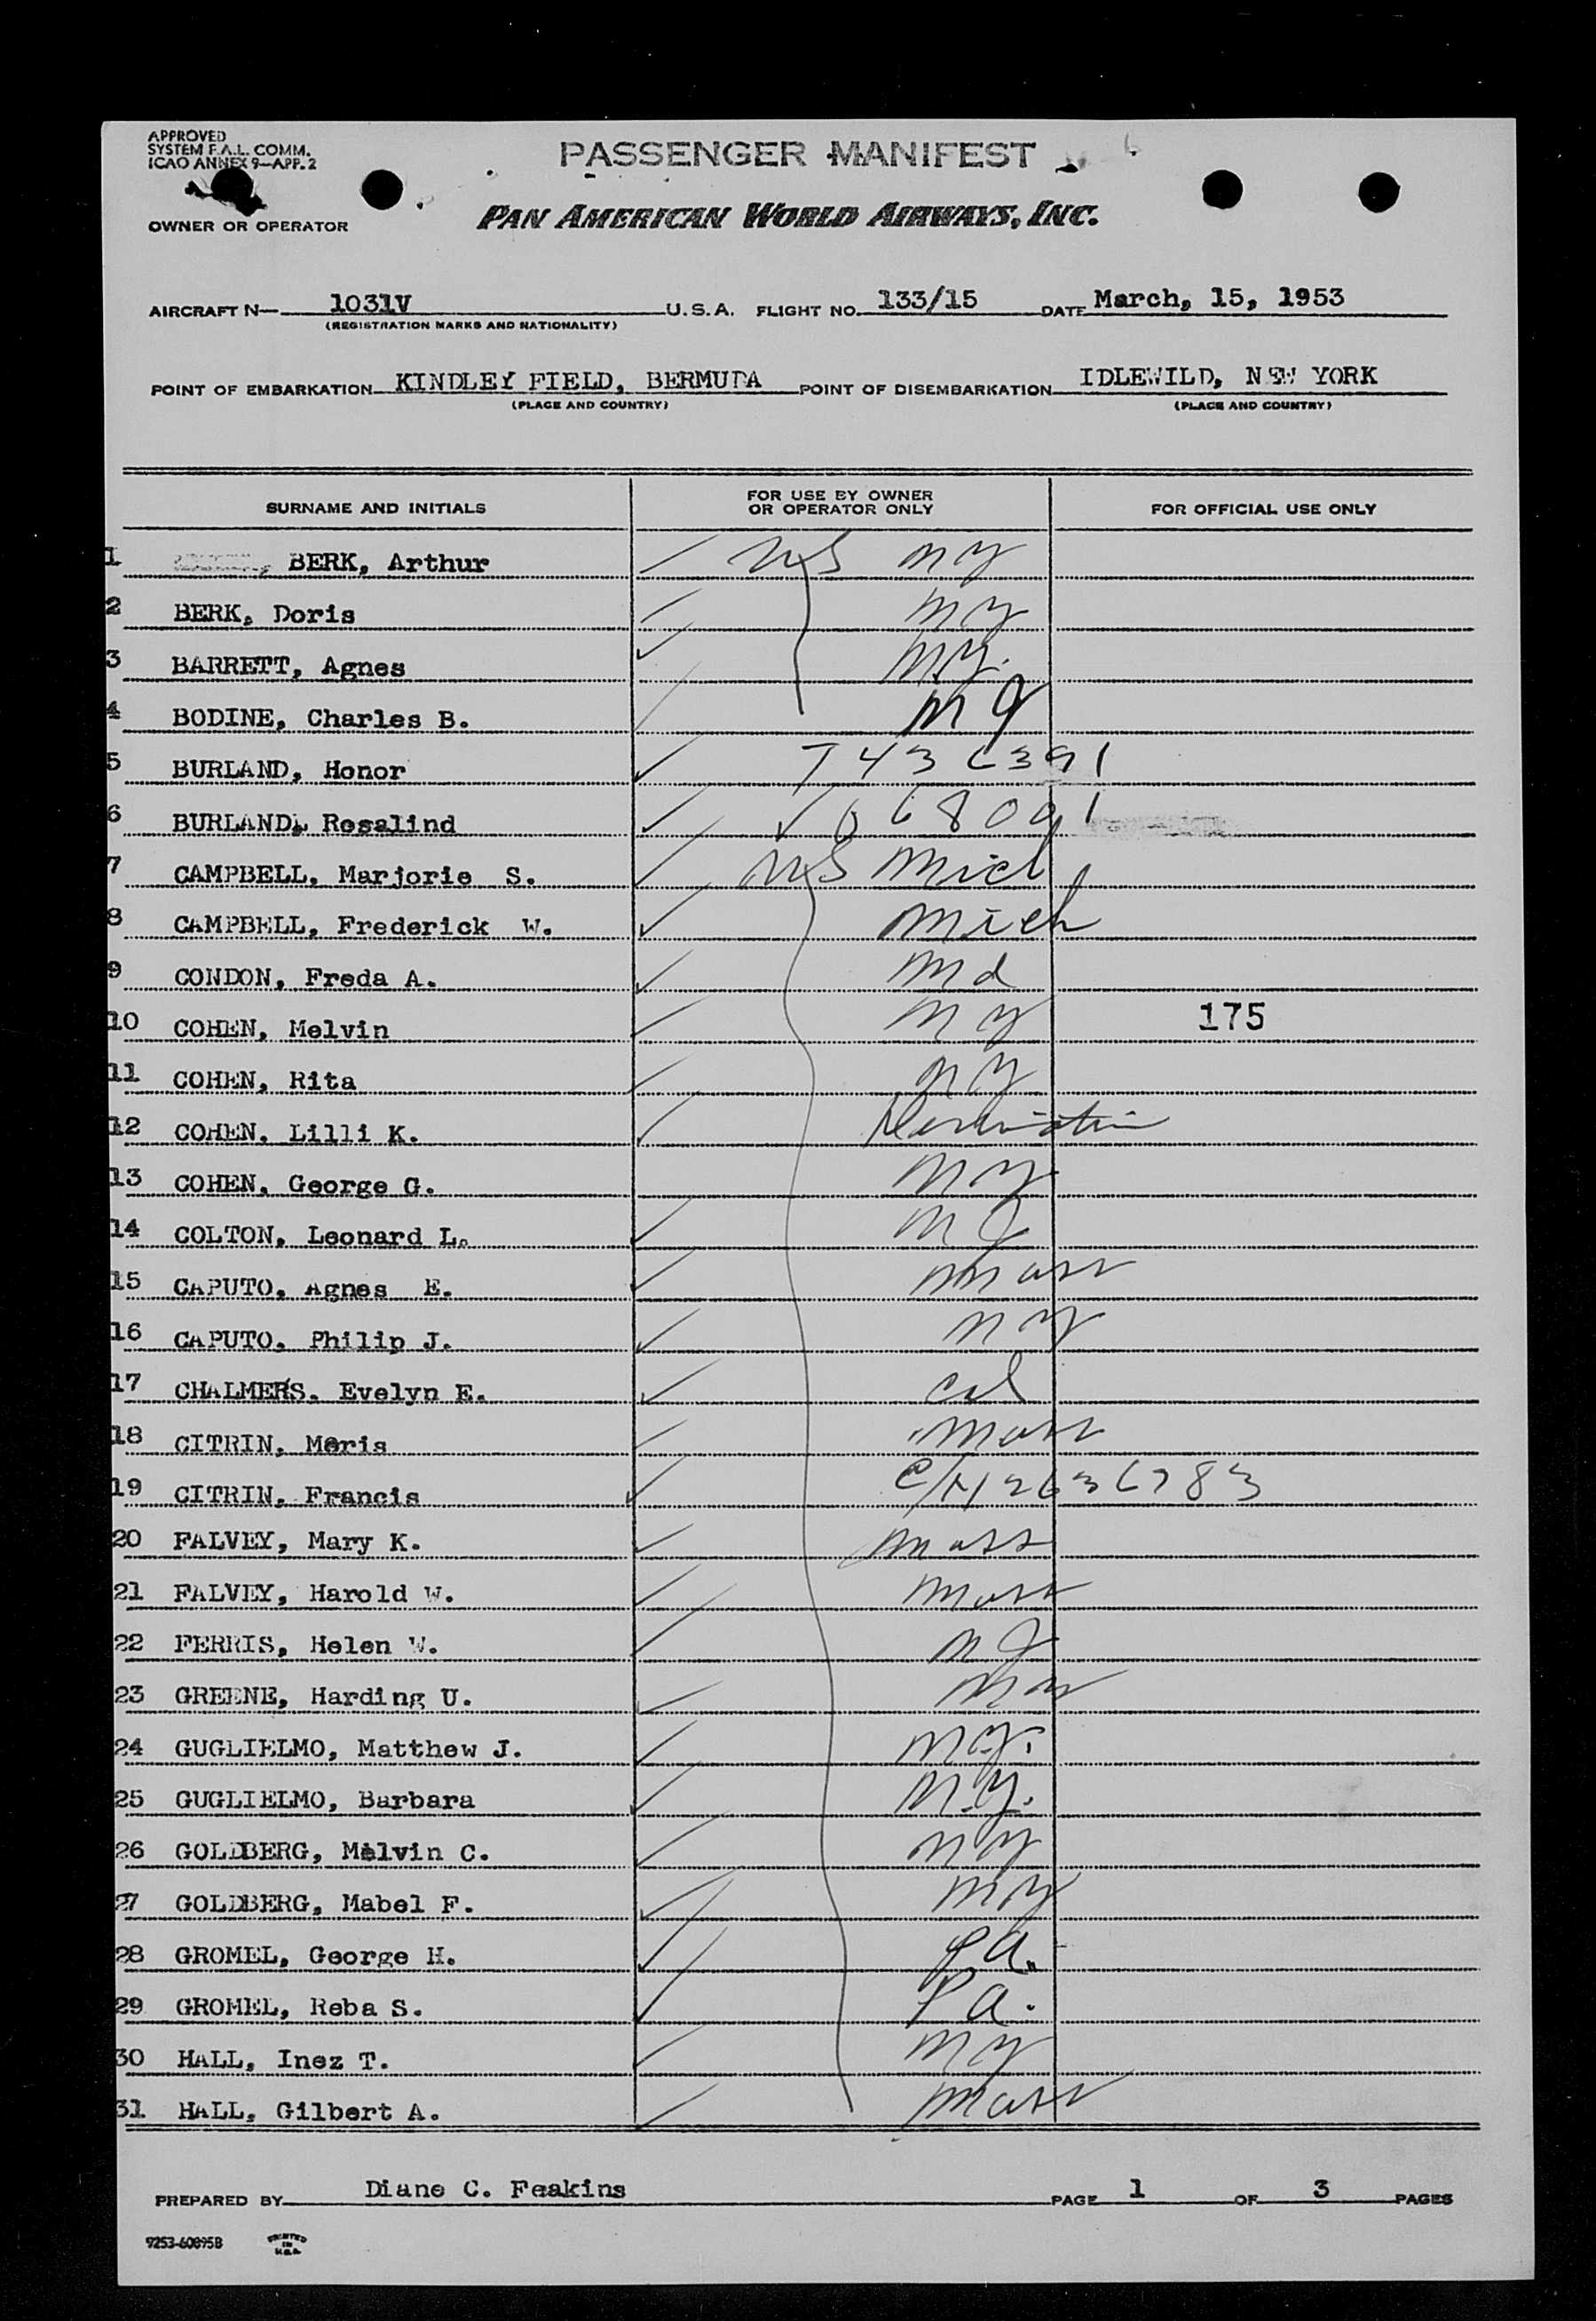 APPROVED
SYSTEM F.A.L. COMM.
ICAO ANNEX 9—APP. 2
PASSENGER MANIFEST
OWNER OR OPERATOR
PAN AMERICAN WORLD AIRWAYS, INC.
AIRCRAFT N— 1031V U.S.A. FLIGHT NO. 133/15 DATE March, 15, 1953
(REGISTRATION MARKS AND NATIONALITY)
POINT OF EMBARKATION KINDLEY FIELD, BERMUDA POINT OF DISEMBARKATION IDLEWILD, NEW YORK
(PLACE AND COUNTRY) (PLACE AND COUNTRY)
SURNAME AND INITIALS FOR USE BY OWNER OR OPERATOR ONLY FOR OFFICIAL USE ONLY
1 BERK, Arthur US NY
2 BERK, Doris NY
3 BARRETT, Agnes N.Y.
4 BODINE, Charles B. NJ
5 BURLAND, Honor
6 BURLAND, Rosalind
7 CAMPBELL, Marjorie S. US Mich
8 CAMPBELL, Frederick W. Mich
9 CONDON, Freda A. Md
10 COHEN, Melvin NY 175
11 COHEN, Rita NY
12 COHEN, Lilli K.
13 COHEN, George G. NY
14 COLTON, Leonard L. NJ
15 CAPUTO, Agnes E. Mass
16 CAPUTO, Philip J. NY
17 CHALMERS, Evelyn E. Cal
18 CITRIN, Meris Mass
19 CITRIN, Francis C/N 2636783
20 FALVEY, Mary K. Mass
21 FALVEY, Harold W. Mass
22 FERRIS, Helen W. NJ
23 GREENE, Harding U.
24 GUGLIELMO, Matthew J. N.Y.
25 GUGLIELMO, Barbara N.Y.
26 GOLDBERG, Melvin C. NY
27 GOLDBERG, Mabel F. NY
28 GROMEL, George H. Pa.
29 GROMEL, Reba S. Pa.
30 HALL, Inez T. NY
31 HALL, Gilbert A. Mass
PREPARED BY Diane C. Feakins PAGE 1 OF 3 PAGES
9253-60895B PRINTED IN U.S.A.